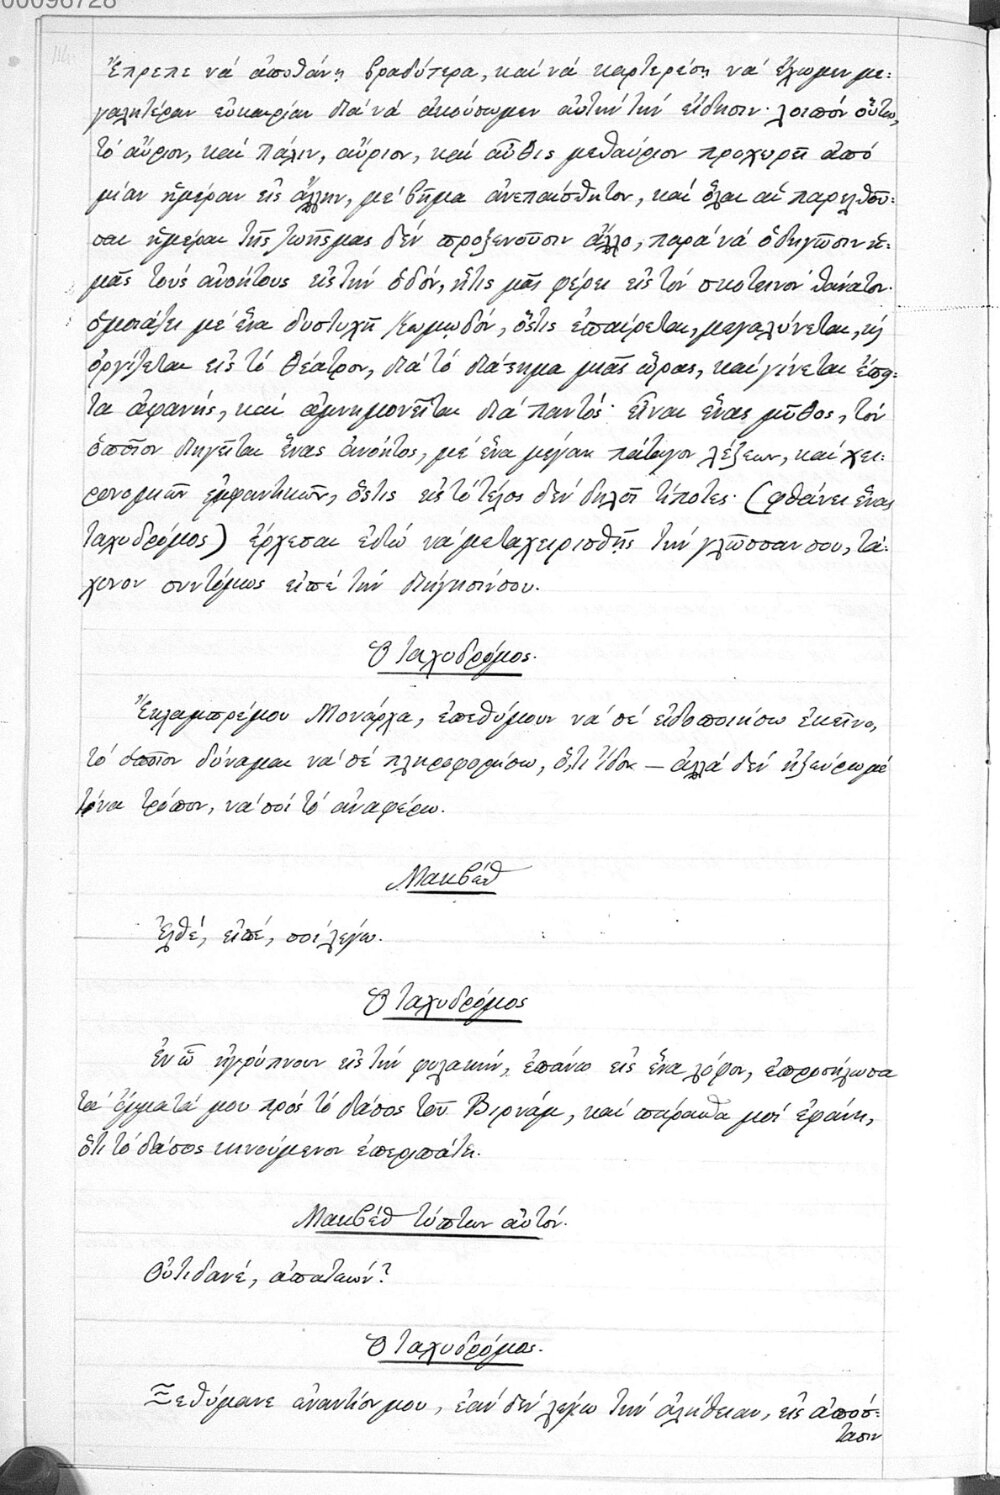 00096728
Ἔπρεπε νὰ ἀποθάνῃ βραδύτερα, καὶ νὰ καρτερέσῃ νὰ ἔχωμεν με=
γαλητέραν εὐκαιρίαν διὰ νὰ ἀκούσωμεν αὐτὴν τὴν εἴδησιν· λοιπὸν οὕτω,
τὸ αὔριον, καὶ πάλιν, αὔριον, καὶ αὖθις μεθαύριον προχωρεῖ ἀπὸ
μίαν ἡμέραν εἰς ἄλλην, μὲ βῆμα ἀνεπαίσθητον, καὶ ὅλαι αἱ παρελθοῦ=
σαι ἡμέραι τῆς ζωῆς μας δὲν προξενοῦσιν ἄλλο, παρὰ νὰ ὁδηγῶσιν ἡ=
μᾶς τοὺς ἀνοήτους εἰς τὴν ὁδόν, ἥτις μᾶς φέρει εἰς τὸν σκοτεινὸν θάνατον·
ὁμοιάζει μὲ ἕνα δυστυχῆ κωμῳδόν, ὅστις ἐπαίρεται, μεγαλύνεται, κ̀
ὀργίζεται εἰς τὸ θέατρον, διὰ τὸ διάστημα μιᾶς ὥρας, καὶ γίνεται ἔπει=
τα ἀφανής, καὶ ἀμνημονεῖται διὰ παντός· εἶναι ἕνας μῦθος, τὸν
ὁποῖον διηγεῖται ἕνας ἀνόητος, μὲ ἕνα μέγαν πάταγον λέξεων, καὶ χει=
ρονομιῶν ἐμφαντικῶν, ὅστις εἰς τὸ τέλος δὲν δηλοῖ τίποτες· (φθάνει ἕνας
ταχυδρόμος) ἔρχεσαι ἐδῶ νὰ μεταχειρισθῇς τὴν γλῶσσαν σου, τά=
χυνον συντόμως εἰπὲ τὴν διήγησίν σου.
Ὁ ταχυδρόμος.
Ἔκλαμπρέ μου Μονάρχα, ἐπεθύμουν νὰ σὲ εἰδοποιήσω ἐκεῖνο,
τὸ ὁποῖον δύναμαι νὰ σὲ πληροφορήσω, ὅ,τι εἶδα — ἀλλὰ δὲν ἠξεύρω μὲ
τίνα τρόπον, νὰ σοὶ τὸ ἀναφέρω.
Μακβέθ
Ἐλθέ, εἰπέ, σοὶ λέγω.
Ὁ ταχυδρόμος
Ἐν ᾧ ἠγρύπνουν εἰς τὴν φυλακήν, ἐπάνω εἰς ἕνα λόφον, ἐπροσήλωσα
τὰ ὄμματά μου πρὸς τὸ δάσος τοῦ Βιρνάμ, καὶ πάραυτα μοὶ ἐφάνη,
ὅτι τὸ δάσος κινούμενον ἐπερπάτει.
Μακβέθ τύπτων αὐτόν.
Οὐτιδανέ, ἀπατεών?
Ὁ ταχυδρόμος.
Ξεθύμανε ἐναντίον μου, ἐὰν δὲν λέγω τὴν ἀλήθειαν, εἰς ἀπόσ=
τασιν